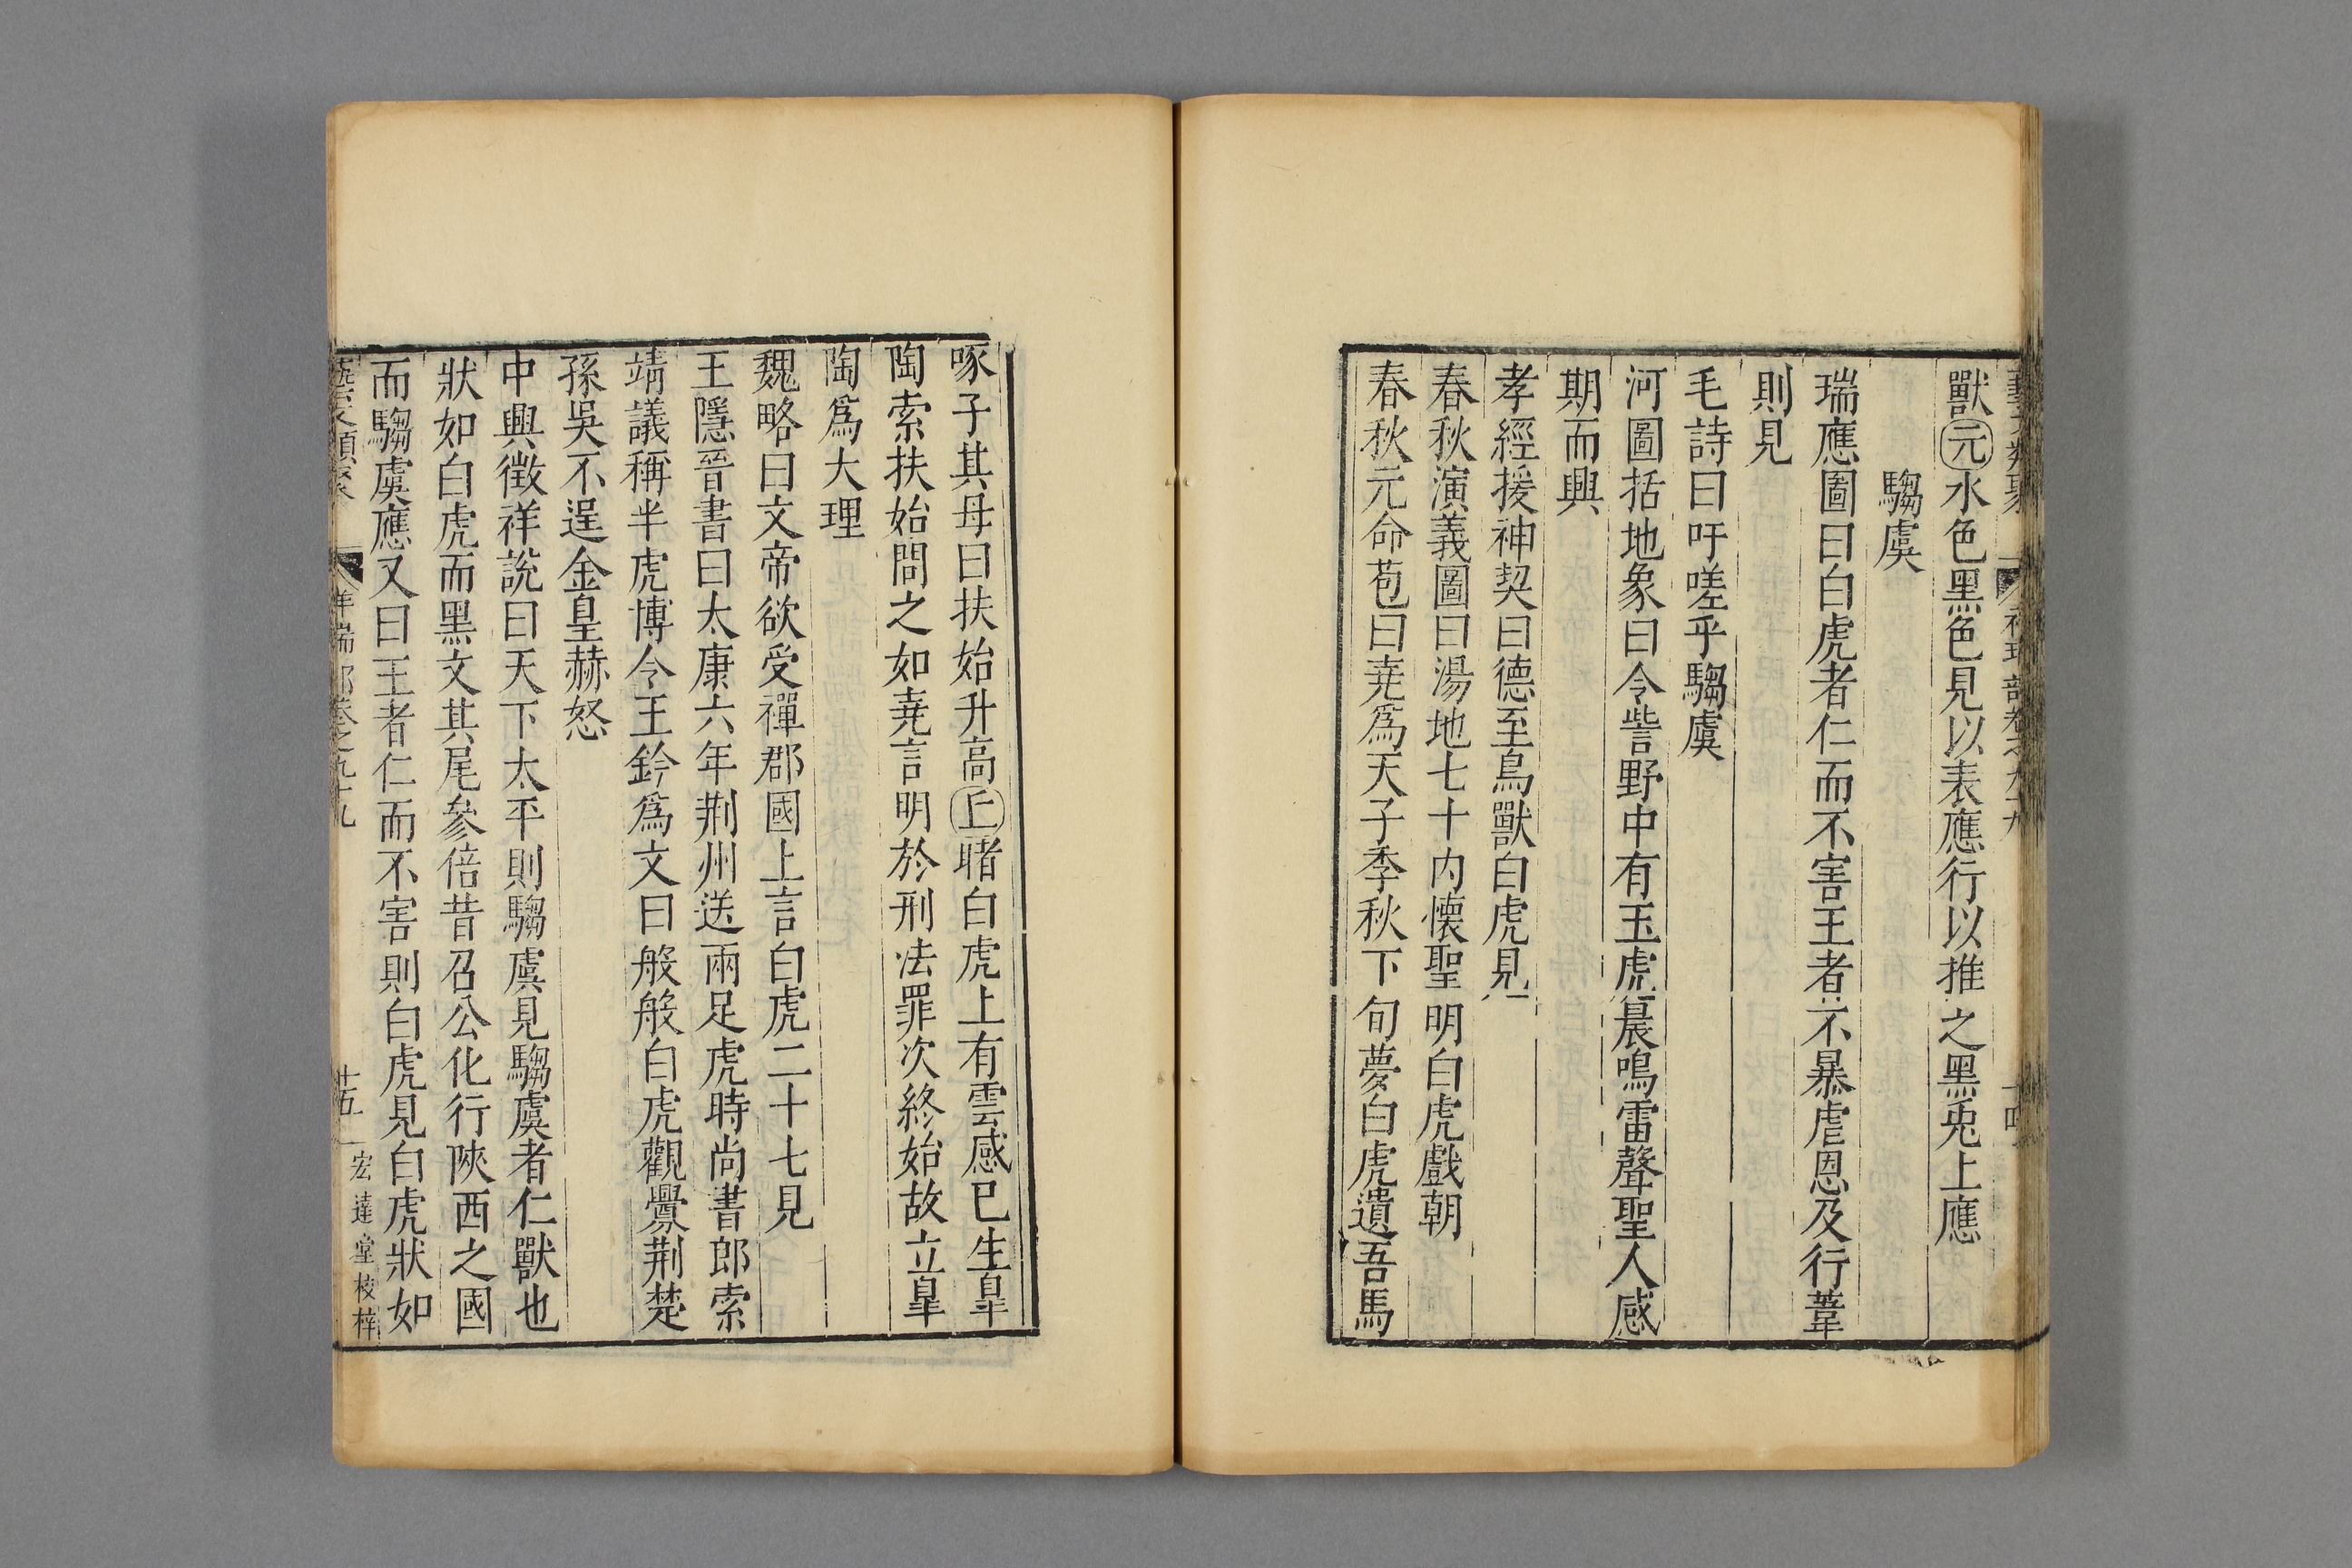 獸元水色黑色見以表應行以推之黑兎上應
騶虞
瑞應圖曰白虎者仁而不害王者不暴虐恩及行葦
則見
毛詩曰吁嗟乎騶虞
河圖括地象曰令訾野中有玉虎晨鳴雷聲聖人感
期而興
孝經援神契曰德至鳥獸白虎見
春秋演義圖曰湯地七十内懷聖明白虎戲朝
春秋元命苞曰堯爲天子季秋下旬夢白虎遺吾馬
啄子其母曰扶始升高丘睹白虎上有雲感已生臯
陶索扶始問之如堯言明於刑法罪次終始故立臯
陶爲大理
魏略曰文帝欲受禪郡國上言白虎二十七見
王隱晉書曰太康六年荆州送兩足虎時尚書郎索
靖議稱半虎博令王鈐爲文曰般般白虎觀釁荆楚
孫吳不逞金皇赫怒
中興徵祥說曰天下太平則騶虞見騶虞者仁獸也
狀如白虎而黑文其尾參倍昔召公化行陜西之國
而騶虞應又曰王者仁而不害則白虎見白虎狀如
十五
宏達堂校梓